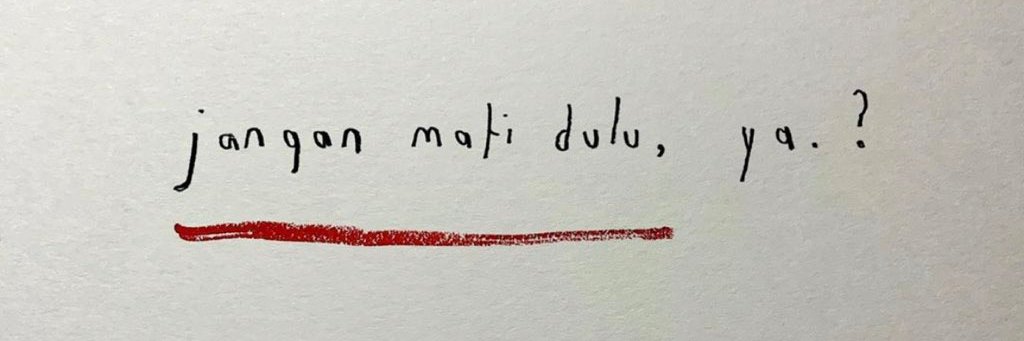 jangan mati dulu, ya. ?